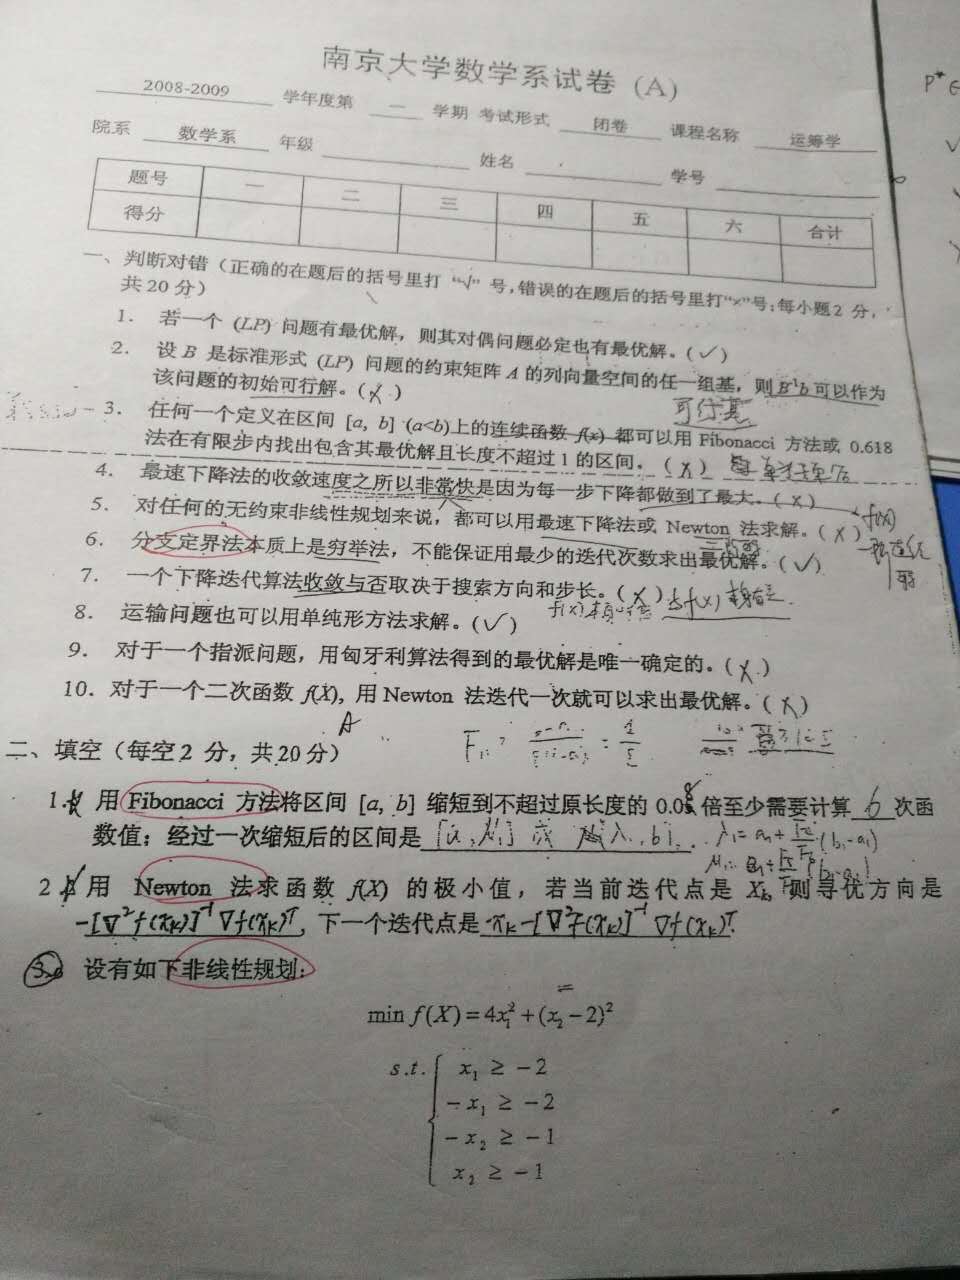 南京大学数学系试卷 (A)
2008-2009 学年度第 一 学期 考试形式 闭卷 课程名称 运筹学
院系 数学系 年级 姓名 学号
题号 一 二 三 四 五 六 合计
得分
一、判断对错（正确的在题后的括号里打“√”号,错误的在题后的括号里打“×”号;每小题2 分,
共20分）
1. 若一个 (LP) 问题有最优解，则其对偶问题必定也有最优解。(✓)
2. 设 B 是标准形式 (LP) 问题的约束矩阵 A 的列向量空间的任一组基，则B⁻¹b可以作为
该问题的初始可行解。(×)
可行基
3. 任何一个定义在区间 [a, b] (a<b)上的连续函数 f(x) 都可以用 Fibonacci 方法或 0.618
法在有限步内找出包含其最优解且长度不超过1的区间。(×)
4. 最速下降法的收敛速度之所以非常快是因为每一步下降都做到了最大。(×)
5. 对任何的无约束非线性规划来说，都可以用最速下降法或 Newton 法求解。(×) f(x)
6. 分支定界法本质上是穷举法，不能保证用最少的迭代次数求出最优解。(✓)
7. 一个下降迭代算法收敛与否取决于搜索方向和步长。(×)
8. 运输问题也可以用单纯形方法求解。(✓)
9. 对于一个指派问题，用匈牙利算法得到的最优解是唯一确定的。(×)
10. 对于一个二次函数 f(X), 用 Newton 法迭代一次就可以求出最优解。(×)
二、填空（每空2 分，共20分）
1. 用 Fibonacci 方法将区间 [a, b] 缩短到不超过原长度的 0.08 倍至少需要计算 6 次函
数值；经过一次缩短后的区间是
2 用 Newton 法求函数 f(X) 的极小值，若当前迭代点是 Xₖ, 则寻优方向是
-[∇²f(xₖ)]⁻¹∇f(xₖ)ᵀ, 下一个迭代点是 xₖ-[∇²f(xₖ)]⁻¹∇f(xₖ)ᵀ.
3. 设有如下非线性规划:
min f(X) = 4x₁² + (x₂ − 2)²
s.t. { x₁ ≥ −2
−x₁ ≥ −2
−x₂ ≥ −1
x₂ ≥ −1